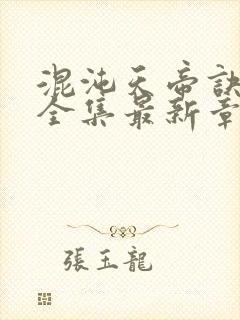 混沌天帝訣
全集最新章
張玉龍